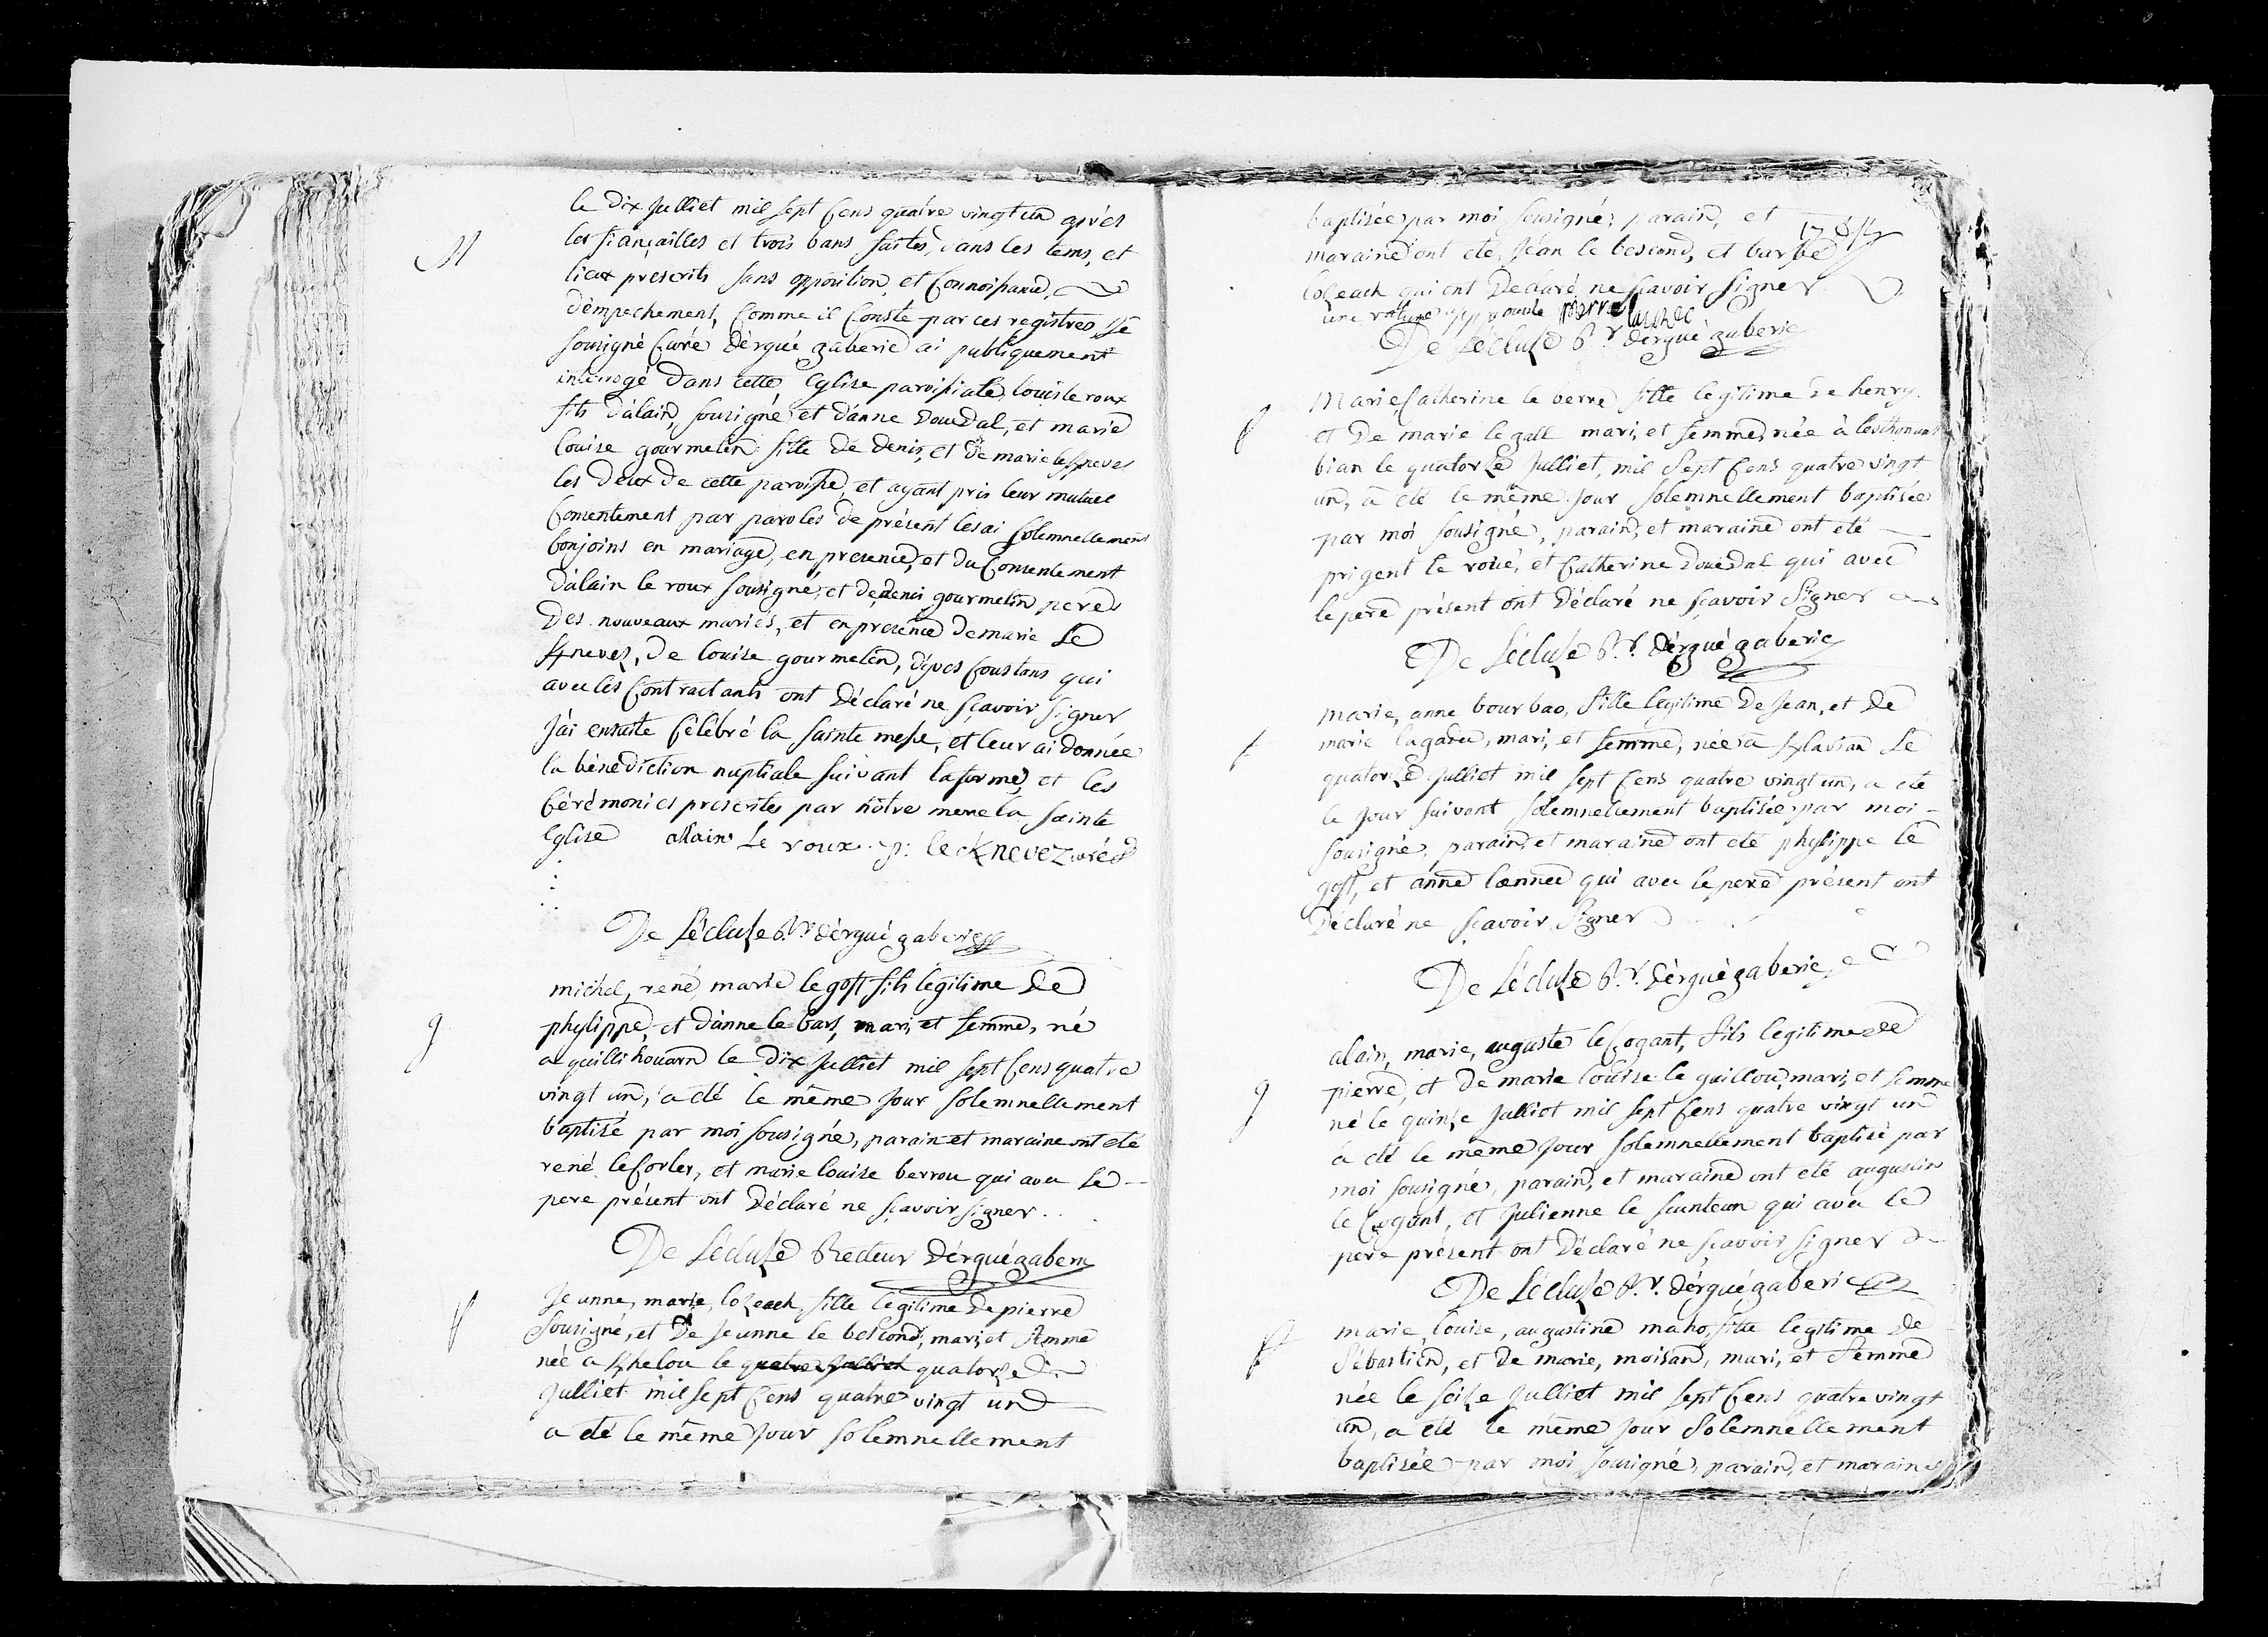 le dix Julliet mil sept cens quatre vingt un après
M
les fiançailles et trois bans faites, dans les tems, et
lieux prescrits sans opposition, et connoissance,
d'empechement, comme il conste par ces registres, Je
sousigné curé d'ergué gabéric ai publiquement
interrogé dans cette Eglise paroissiale, louis le roux
fils d'alain, sousigné, et d'anne Douedal, et marie
louise gourmelin fille de denis, et de marie le Knevez
les deux de cette paroisse, et ayant pris leur mutuel
consentement par paroles de présent les ai solemnellement
conjoins en mariage, en presence, et du consentement
d'alain le roux sousigné, et de denis gourmelin peres
des nouveaux mariés, et en presence de marie Le
Knevez, de louise gourmelin, d'yves coustans qui
avec les contractants ont déclaré ne sçavoir signer
J'ai ensuite célébré la sainte messe, et leur ai donnée
la bénédiction nuptiale suivant la forme, et les
cérémonies prescrites par nôtre mere la sainte
Eglise alain Le roux. p: le Knevez
De Lécluse R.r d'ergué gaberic
michel, rené, marie le goff fils légitime de
g
phylippe, et d'anne le bars, mari, et femme, né
a quillihouarn le dix Julliet mil sept cens quatre
vingt un, a été le même Jour solemnellement
baptisé par moi sousigné, parain et maraine ont été
rené le corler, et marie louise berrou qui avec le
pere présent ont déclaré ne sçavoir signer.
De Lécluse Recteur d'ergué gaberic
Jeanne, marie, lozeach, fille légitime de pierre
f
sousigné, et de Jeanne le bescond, mari, et femme
née a Khelou le quatre Julliet quatorze
Julliet mil sept cens quatre vingt un
a été le même Jour solemnellement
baptisée par moi sousigné, parain, et
maraine ont été, Jean le bescond, et barbe
lozeach qui ont déclaré ne sçavoir signer
une rature approuvée pierre
De Lécluse R.r d'ergué gaberic
Marie, catherine le berre fille légitime de henry
f
et de marie le gall mari, et femme, née à lesthonant
bian le quatorze Julliet, mil sept cens quatre vingt
un, a été le même Jour solemnellement baptisée
par moi sousigné, parain, et maraine ont été
prigent le roué, et catherine Douedal qui avec
le pere présent ont déclaré ne sçavoir signer
De Lécluse R.r d'ergué gaberic
Marie, anne bourbao, fille légitime de Jean, et de
f
marie lagadec, mari, et femme, née a Le
quatorze Julliet mil sept cens quatre vingt un, a été
le Jour suivant solemnellement baptisée par moi
sousigné, parain, et maraine ont été phylippe le
goff, et anne laennec qui avec le pere présent ont
déclaré ne sçavoir signer
De Lécluse R.r d'ergué gaberic
alain, marie, auguste le cogant, fils légitime de
g
pierre, et de marie louise le guillou, mari, et femme
né le quinze Julliet mil sept cens quatre vingt un
a été le même Jour solemnellement baptisé par
moi sousigné, parain, et maraine ont été augustin
le cogant, et Julienne le qui avec le
pere présent ont déclaré ne sçavoir signer
De Lécluse R.r d'ergué gaberic
marie, louise, augustine maho, fille légitime de
f
sébastien, et de marie, moisan, mari, et femme
née le seize Julliet mil sept cens quatre vingt
un, a été le même Jour solemnellement
baptisée par moi sousigné, parain, et maraine